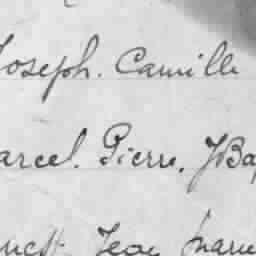 Joseph. Camille
arcel. Pierre. JBap
nest. Jean Marie